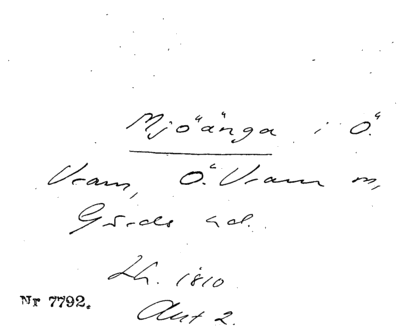 Mjöänga i Ö.
Vram, Ö. Vram m,
Gärds hd.
Lh. 1810
Akt 2.
Nr 7792.